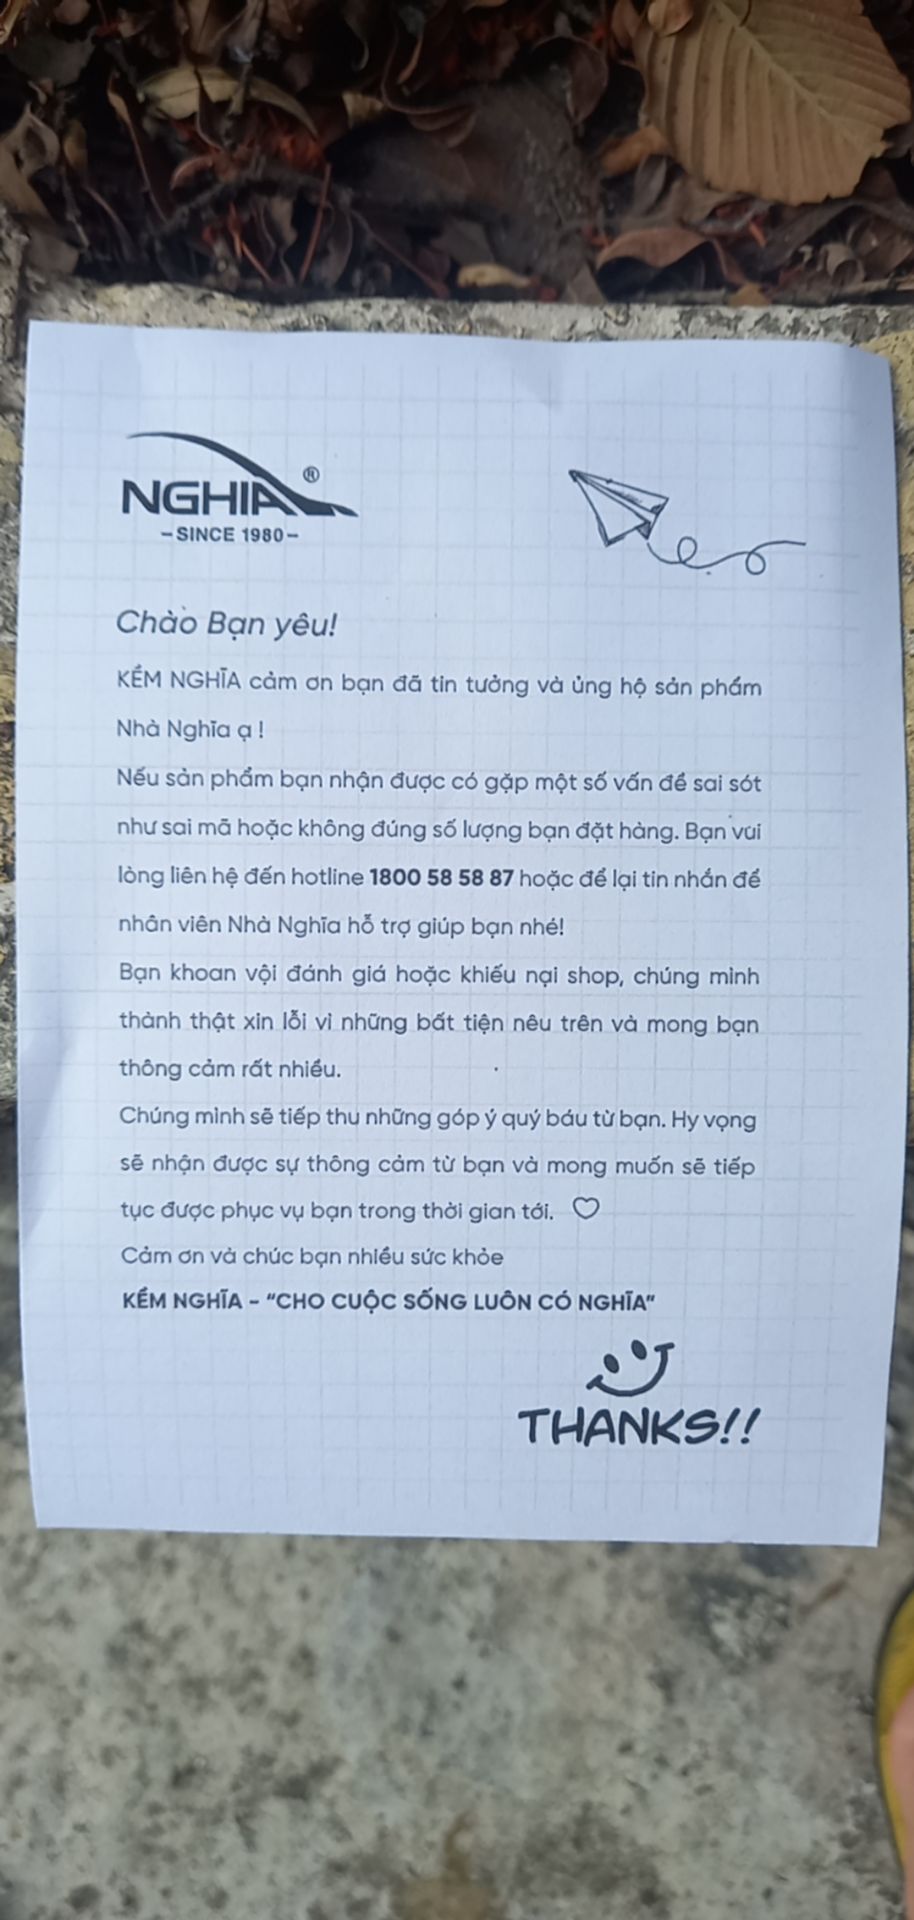 NGHIA®
-SINCE 1980-
Chào Bạn yêu!
KỀM NGHĨA cảm ơn bạn đã tin tưởng và ủng hộ sản phẩm
Nhà Nghĩa ạ !
Nếu sản phẩm bạn nhận được có gặp một số vấn đề sai sót
như sai mã hoặc không đúng số lượng bạn đặt hàng. Bạn vui
lòng liên hệ đến hotline 1800 58 58 87 hoặc để lại tin nhắn để
nhân viên Nhà Nghĩa hỗ trợ giúp bạn nhé!
Bạn khoan vội đánh giá hoặc khiếu nại shop, chúng mình
thành thật xin lỗi vì những bất tiện nêu trên và mong bạn
thông cảm rất nhiều.
Chúng mình sẽ tiếp thu những góp ý quý báu từ bạn. Hy vọng
sẽ nhận được sự thông cảm từ bạn và mong muốn sẽ tiếp
tục được phục vụ bạn trong thời gian tới. ♡
Cảm ơn và chúc bạn nhiều sức khỏe
KỀM NGHĨA - "CHO CUỘC SỐNG LUÔN CÓ NGHĨA"
THANKS!!